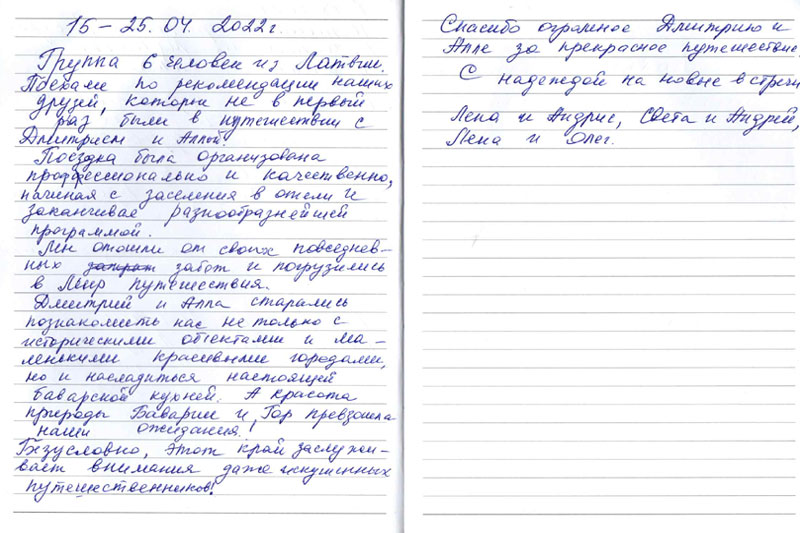 15 – 25. 04. 2022г.
Группа 6 человек из Латвии.
Поехали по рекомендации наших
друзей, которые не в первый
раз были в путешествии с
Дмитрием и Аллой.
Поездка была организована
профессионально и качественно,
начиная с заселения в отели и
заканчивае разнообразнейшей
программой.
Мы отошли от своих повседнев-
ных забот и погрузились
в Мир путешествия.
Дмитрий и Алла старались
познакомить нас не только с
историческими объектами и ма-
ленькими красивыми городами,
но и насладиться настоящей
баварской кухней. А красота
природы Баварии и Гор превзошла
наши ожидания!
Безусловно, этот край заслужи-
вает внимания даже искушенных
путешественников!
Спасибо огромное Дмитрию и
Алле за прекрасное путешествие.
С надеждой на новые встречи
Лена и Андрис, Света и Андрей,
Лена и Олег.